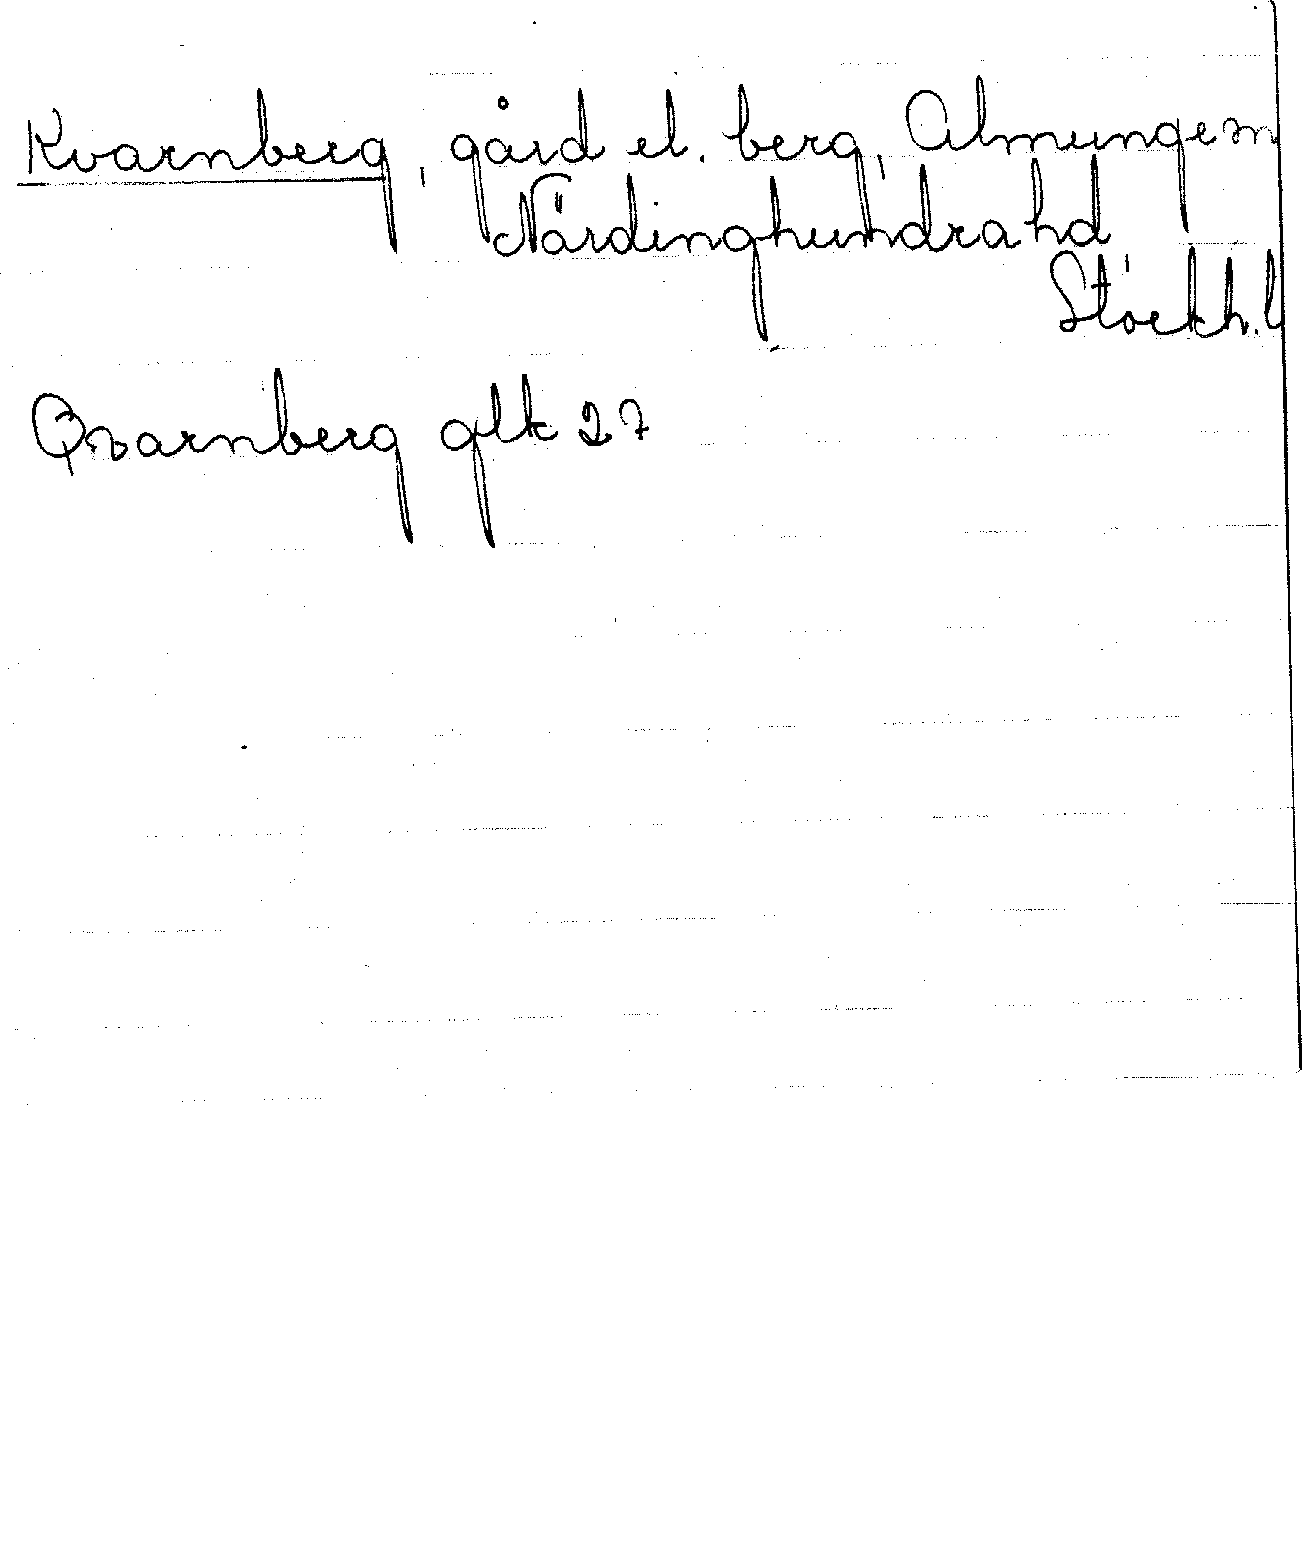 Kvarnberg, gård el. berg, Almunge sn
Närdinghundra hd,
Stockh. l
Qvarnberg glk 27